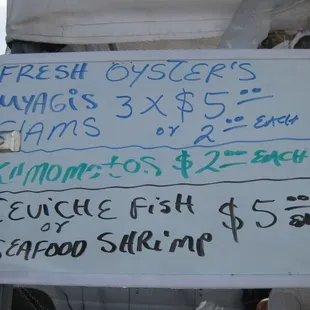 FRESH OYSTER'S
MYAGIS 3 X $5 00
CLAMS or 2 00 EACH
KUMOMOTOS $2 00 EACH
CEVICHE FISH $5 00
or
SEAFOOD SHRIMP